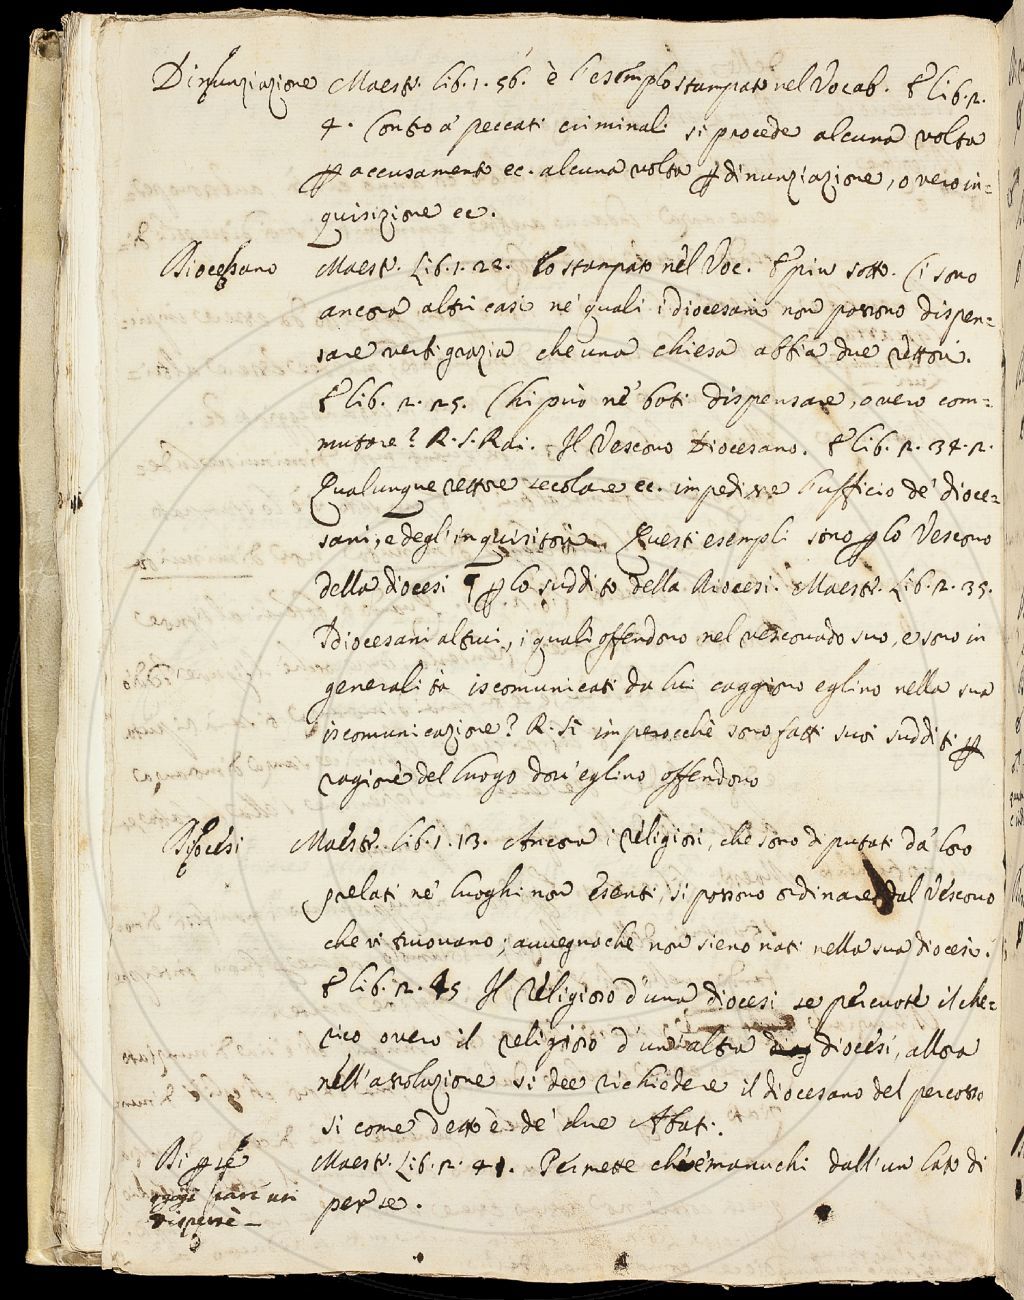 Dinunziazione Maestr. Lib. 1. 56. è l'esemplo stampato nel Vocab. E lib. 2.
4. Contro a' peccati criminali si procede alcuna volta
p accusamento ec. alcuna volta p dinunziazione, o vero in=
quisizione ec.
Diocesano Maestr. Lib. 1. 28. lo stampato nel Voc. E piu sotto. Ci sono
ancora altri casi ne' quali i diocesani non possono dispen=
sare verbi grazia che una chiesa abbia due rettori.
E lib. 2. 25. Chi può ne' boti dispensare, overo com=
mutare? R. S. Rai. Il Vescovo Diocesano. E lib. 2. 34. 2.
Qualunque rettore secolare ec. impedisse l'ufficio de' dioce=
sani, e degl'inquisitori. Questi esempli sono p lo Vescovo
della diocesi p lo suddito della Diocesi. Maestr. Lib. 2. 35.
I diocesani altrui, i quali offendono nel vescovado suo, e sono in
generalità iscomunicati da lui caggiono eglino nella sua
iscomunicazione? R. Sì imperocchè sono fatti suoi sudditi p
ragione del luogo dov'eglino offendono
Diocesi Maestr. Lib. 1. 13. Ancora i religiosi, che sono diputati da' loro
prelati ne' luoghi non esenti, si possono ordinare dal Vescovo
che vi truovano, avvegnachè non sieno nati nella sua diocesi.
E lib. 2. 45 Il religioso d'una diocesi se percuote il che=
rico overo il religioso d'un'altra diocesi, allora
nell'assoluzione si dee richiedere il diocesano del percosso
si come detto è de' due Abati.
Di p se Maestr. Lib. 2. 41. Permette ch'e' manuchi dall'un lato di
oggi
disperse per se.